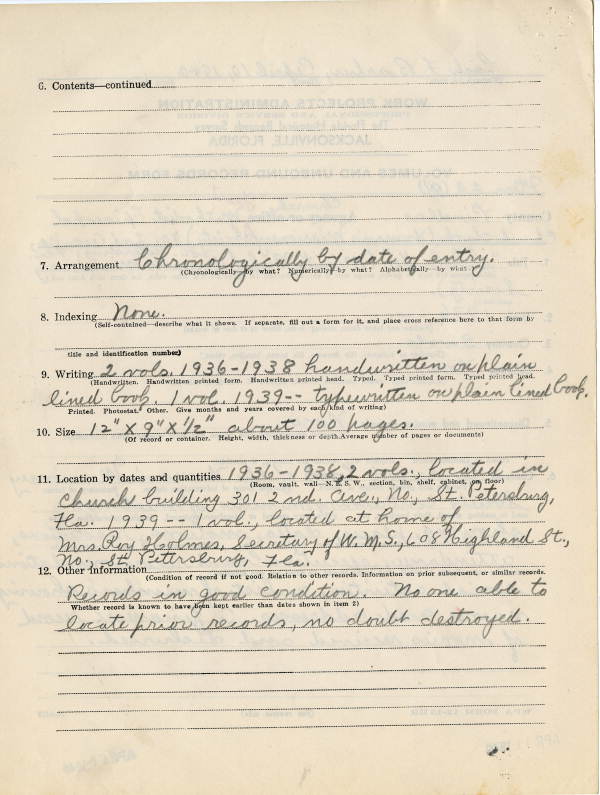 6. Contents—continued
7. Arrangement Chronologically by date of entry.
(Chronologically—by what? Numerically—by what? Alphabetically—by what
8. Indexing None.
(Self-contained—describe what it shows. If separate, fill out a form for it, and place cross reference here to that form by
title and identification number)
9. Writing 2 vols. 1936-1938 handwritten on plain
(Handwritten. Handwritten printed form. Handwritten printed head. Typed. Typed printed form. Typed printed head.
lined book. 1 vol. 1939-- typewritten on plain lined book.
Printed. Photostat. Other. Give months and years covered by each kind of writing)
10. Size 12" X 9" X 1/2" about 100 pages.
(Of record or container. Height, width, thickness or depth. Average number of pages or documents)
11. Location by dates and quantities 1936-1938, 2 vols., located in
(Room, vault, wall—N. E. S. W., section, bin, shelf, cabinet, on floor)
Church building 301 2nd. Ave., No., St. Petersburg,
Fla. 1939 -- 1 vol., located at home of
Mrs. Roy Holmes, Secretary of W. M. S., 608 Highland St.,
No., St. Petersburg, Fla.
12. Other information
(Condition of record if not good. Relation to other records. Information on prior subsequent, or similar records.
Records in good condition. No one able to
Whether record is known to have been kept earlier than dates shown in item 2)
locate prior records, no doubt destroyed.